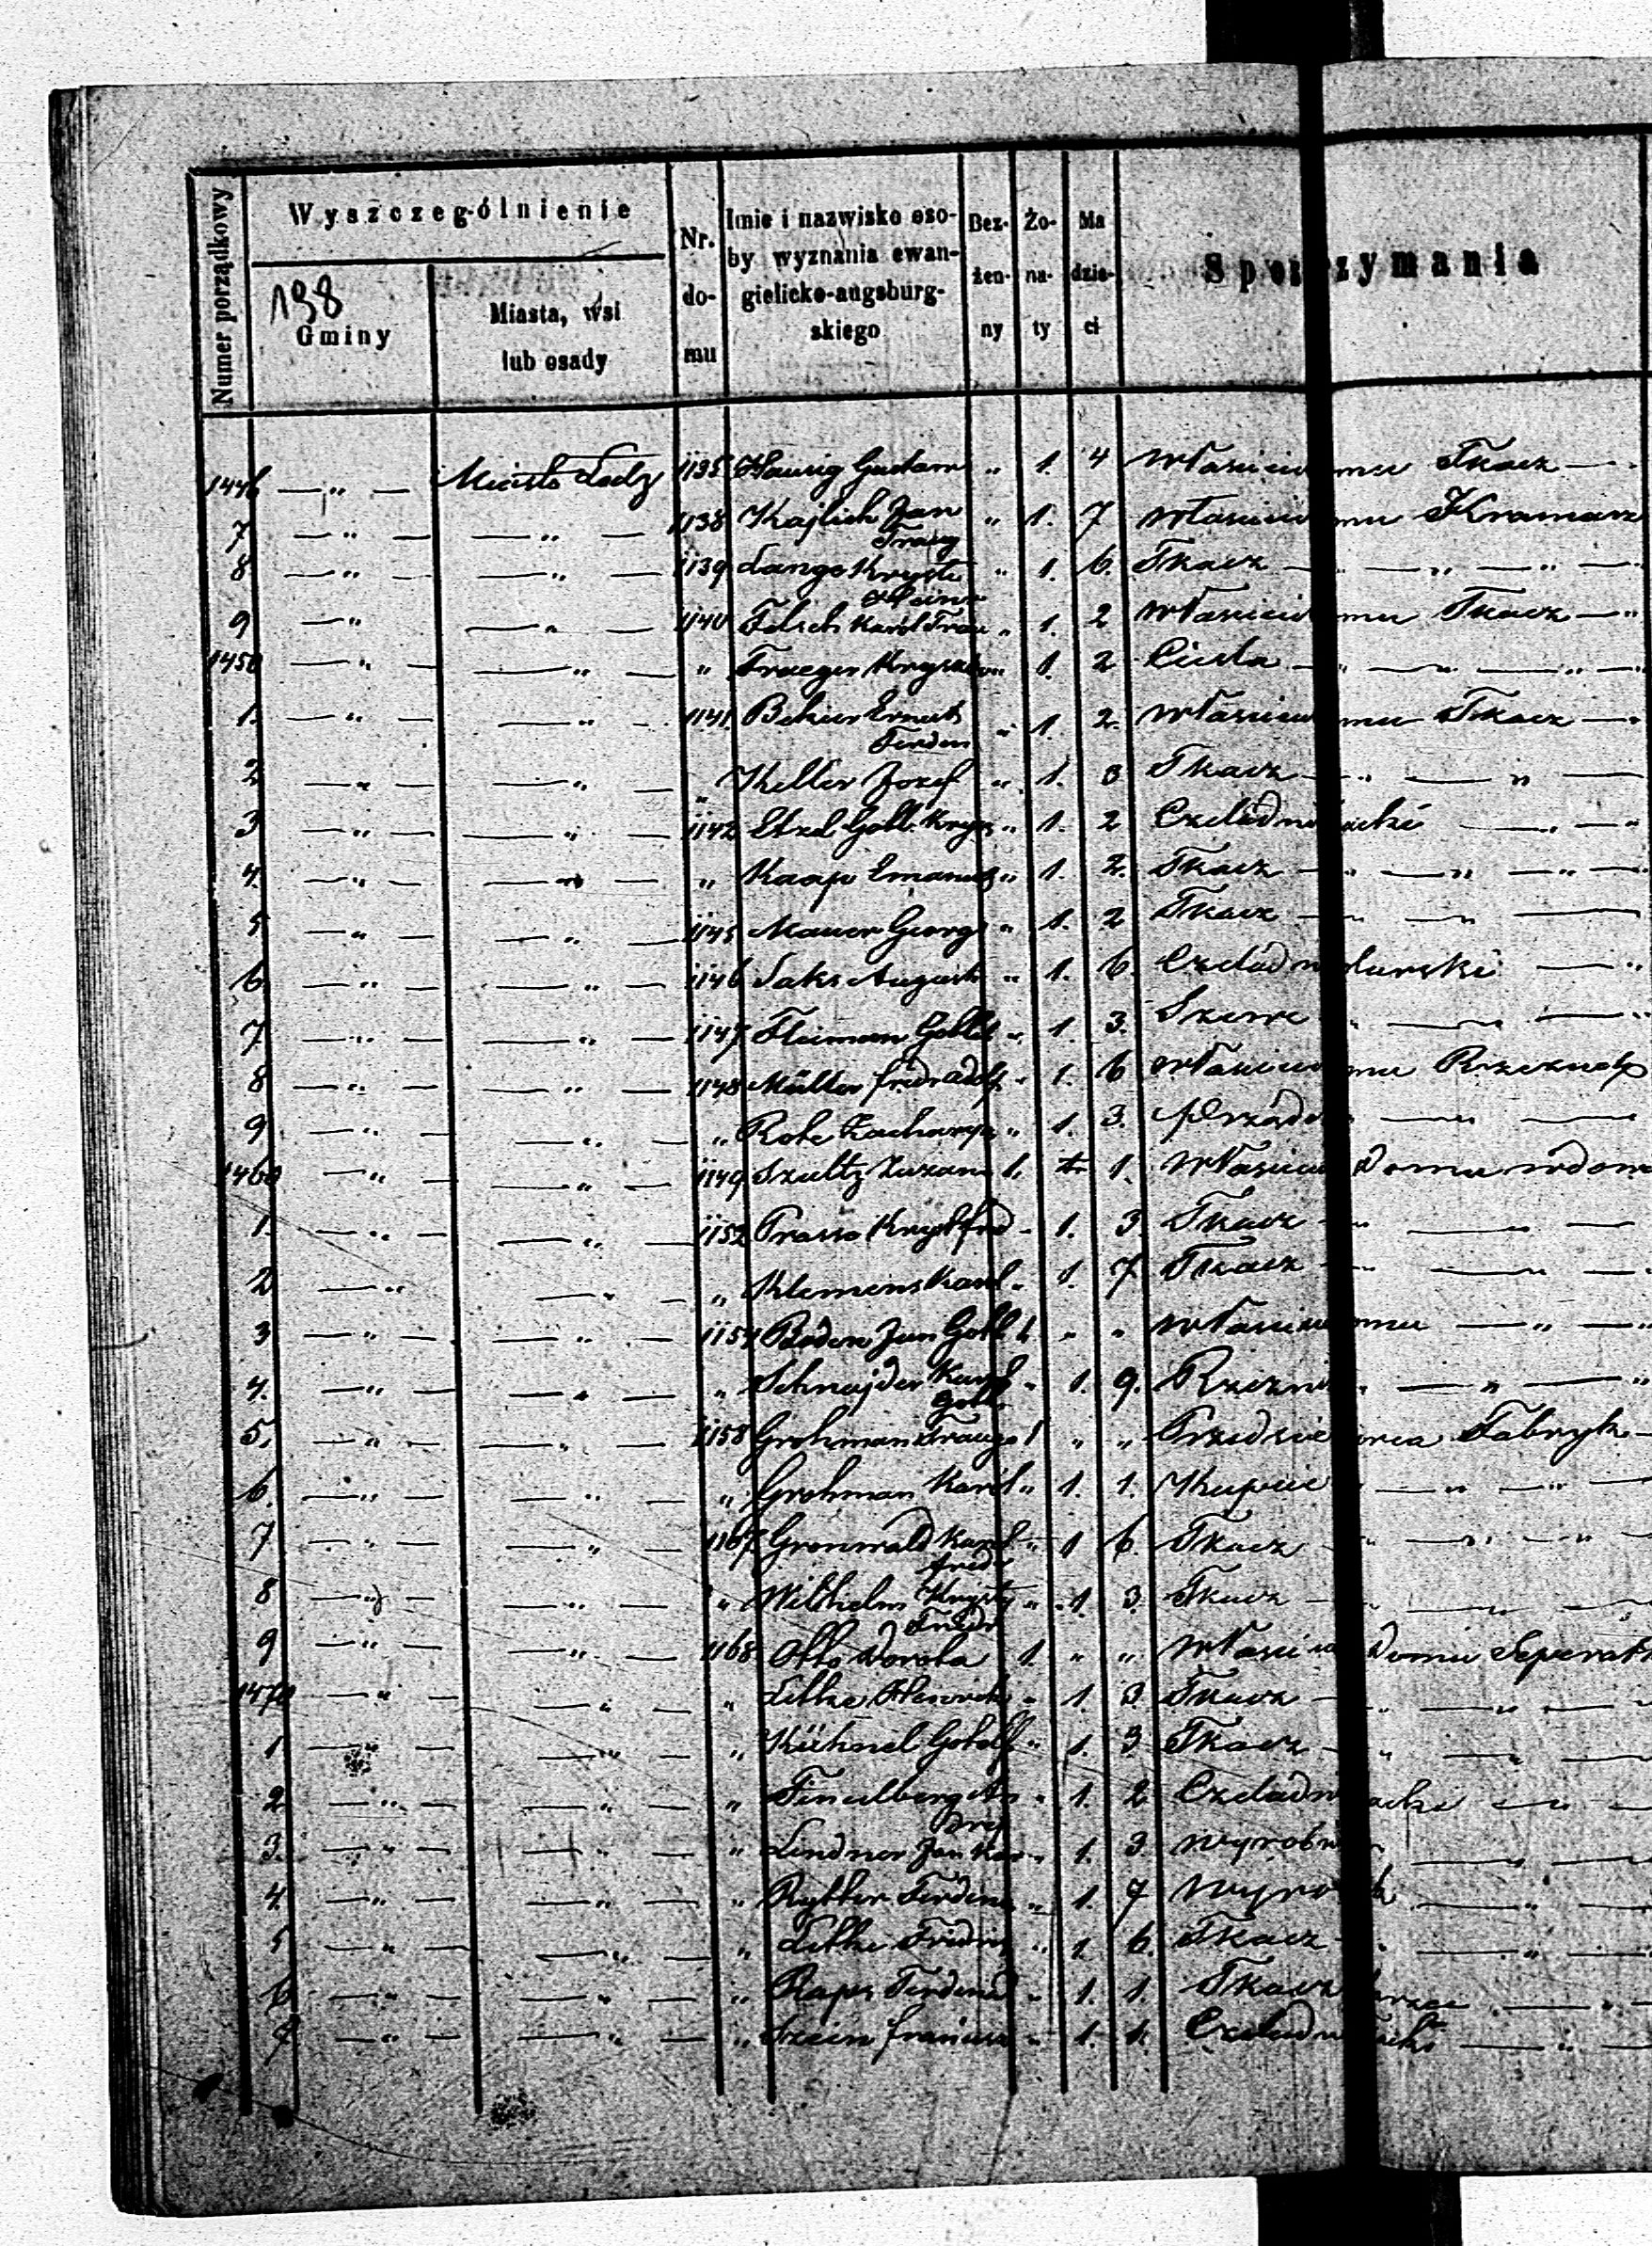 Numer porządkowy
Wyszczególnienie
198
Gminy
Miasta, wsi lub osady
Nr. domu
Imie i nazwisko osoby wyznania ewangielicko-augsburskiego
Bezżenny
Żonaty
Ma dzieci
Sp zymania
1446 — " — Miasto Łodz 1135 Hausig Gustaw " 1. 4 Włascici mu Tkacz — "
7 — " — — " — 1138 Kajlich Jan Traug " 1. 7 Włascici mu Kramarz
8 — " — — " — 1139 Lange Kryst " 1. 6. Tkacz — " — " —
9 — " — " — 1140 Felsch Karól Trau " 1. 2 Włascici mu Tkacz — "
1450 — " — — " — " Traeger Kryszt " 1. 2 Ciesla — " — " — "
1. — " — — " — 1141. Beker Ernest Ferden " 1. 2. Włascici mu Tkacz —
2 — " — — " — " Keller Jozef " 1. 3 Tkacz — " — " —
3 — " — — " — 1142 Etzel Gotl. Kryz " 1. 2 Czeladni acki — " —
4. — " — — " — " Kaap Emanuel " 1. 2. Tkacz — " — " —
5 — " — — " — 1145 Mauer Georg " 1. 2 Tkacz — " —
6 — " — — " — 1146 Saks August " 1. 6. Czeladn larski — "
7 — " — — " — 1147 Fleiman Gottl " 1. 3. Szewc — " —
8 — " — — " — 1148 Müller fridr adolf " 1. 6 Włascici mu Rzeznik
9 — " — — " — " Rote Zacharya " 1. 3. — —
1460 — " — — " — 1149 Szultz Zuzan 1. 1. Włascici Domu wdow
1. — " — — " — 1152 Prasse Kryst frd " 1. 3. Tkacz — " —
2 — " — — " — " Klemens Karol " 1. 7 Tkacz — " —
3 — " — — " — 1154 Boden Jan Gotl 1. " " Włascici mu — " — "
4. — " — — " — " Schnajder Karol Gotl. " 1. 9. Rzezni — " — "
5. — " — — " — 1158 Grohman Traugo 1 " " Przedsie orca Fabryk —
6. — " — — " — " Grohman Karól " 1. 1. Kupiec — " — " —
7 — " — — " — 1167 Gronwald Karol fridr " 1 6. Tkacz — " — "
8 — " — — " — " Wilhelm Krysty Fridr " 1. 3. Tkacz —
9 — " — — " — 1168 Otto Dorota 1. " " Włascici Domu Seperat
1470 — " — — " — " Letke " 1. 3 Tkacz — " —
1 — " — — " — " Kühnel Gotlf " 1. 3 Tkacz — " —
2 — " — — " — " An Drej " 1. 2 Czeladn acki — " —
3. — " — — " — " Lindner Jan Kar " 1. 3 wyrobn —
4. — " — — " — " Rytter Ferdina " 1. 7 wyro — " —
5 — " — — " — " Letke Fridri " 1. 6. Tkacz — " —
6 — " — — " — " Raps Ferdind " 1. 1. Tkacz — " —
7 — " — — " — " Szein francisz " 1. 1. Czeladn acki — " —